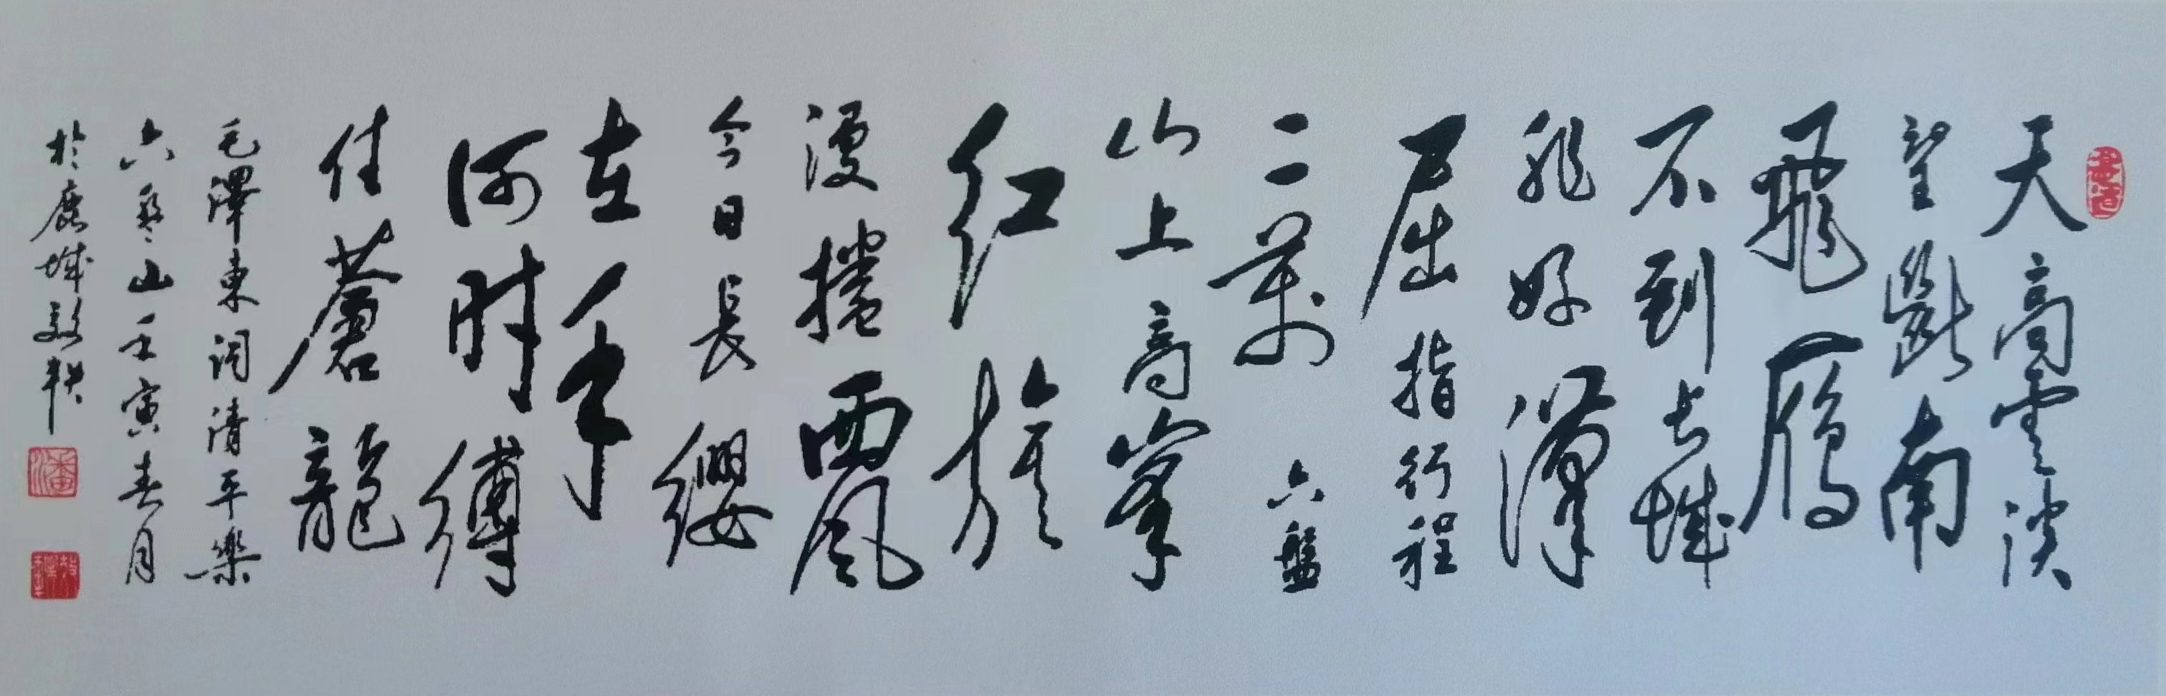 天高雲淡
望斷南
飛雁
不到长城
非好漢
屈指行程
二萬六盤
山上高峯
红旗
漫捲西風
今日長纓
在手
何時縛
住蒼龍
毛澤東詞清平樂
六盤山壬寅春月
於鹿城
潘